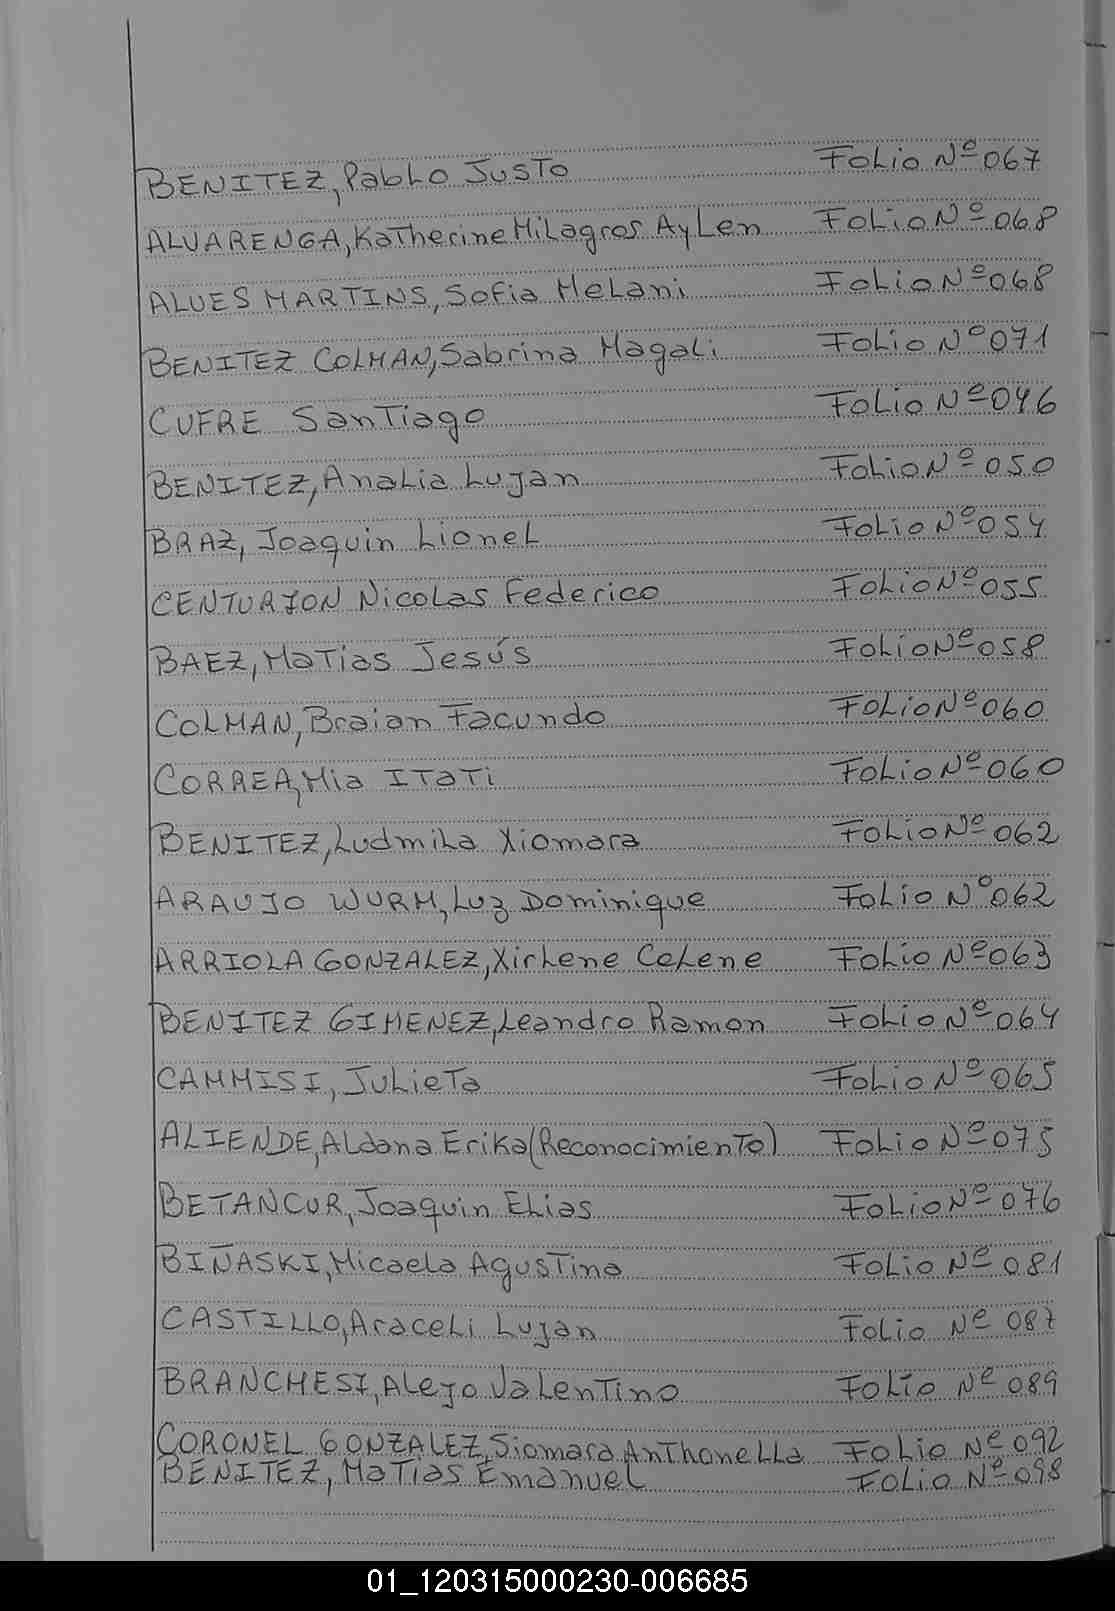 BENITEZ, Pablo Justo Folio Nº 067
ALVARENGA, Katherine Milagros Aylen Folio Nº 068
ALVES MARTINS, Sofia Melani Folio Nº 068
BENITEZ COLMAN, Sabrina Magali Folio Nº 071
CUFRE Santiago Folio Nº 046
BENITEZ, Analia Lujan Folio Nº 050
BRAZ, Joaquin Lionel Folio Nº 054
CENTURION Nicolas Federico Folio Nº 055
BAEZ, Matias Jesús Folio Nº 058
COLMAN, Braian Facundo Folio Nº 060
CORREA, Mia Itati Folio Nº 060
BENITEZ, Ludmila Xiomara Folio Nº 062
ARAUJO WURM, Luz Dominique Folio Nº 062
ARRIOLA GONZALEZ, Xirlene Celene Folio Nº 063
BENITEZ GIMENEZ, Leandro Ramon Folio Nº 064
CAMMISI, Julieta Folio Nº 065
ALIENDE, Aldana Erika (Reconocimiento) Folio Nº 075
BETANCUR, Joaquin Elias Folio Nº 076
BIÑASKI, Micaela Agustina Folio Nº 081
CASTILLO, Araceli Lujan Folio Nº 087
BRANCHESI, Alejo Valentino Folio Nº 089
CORONEL GONZALEZ, Siomara Anthonella Folio Nº 092
BENITEZ, Matias Emanuel Folio Nº 098
01_120315000230-006685